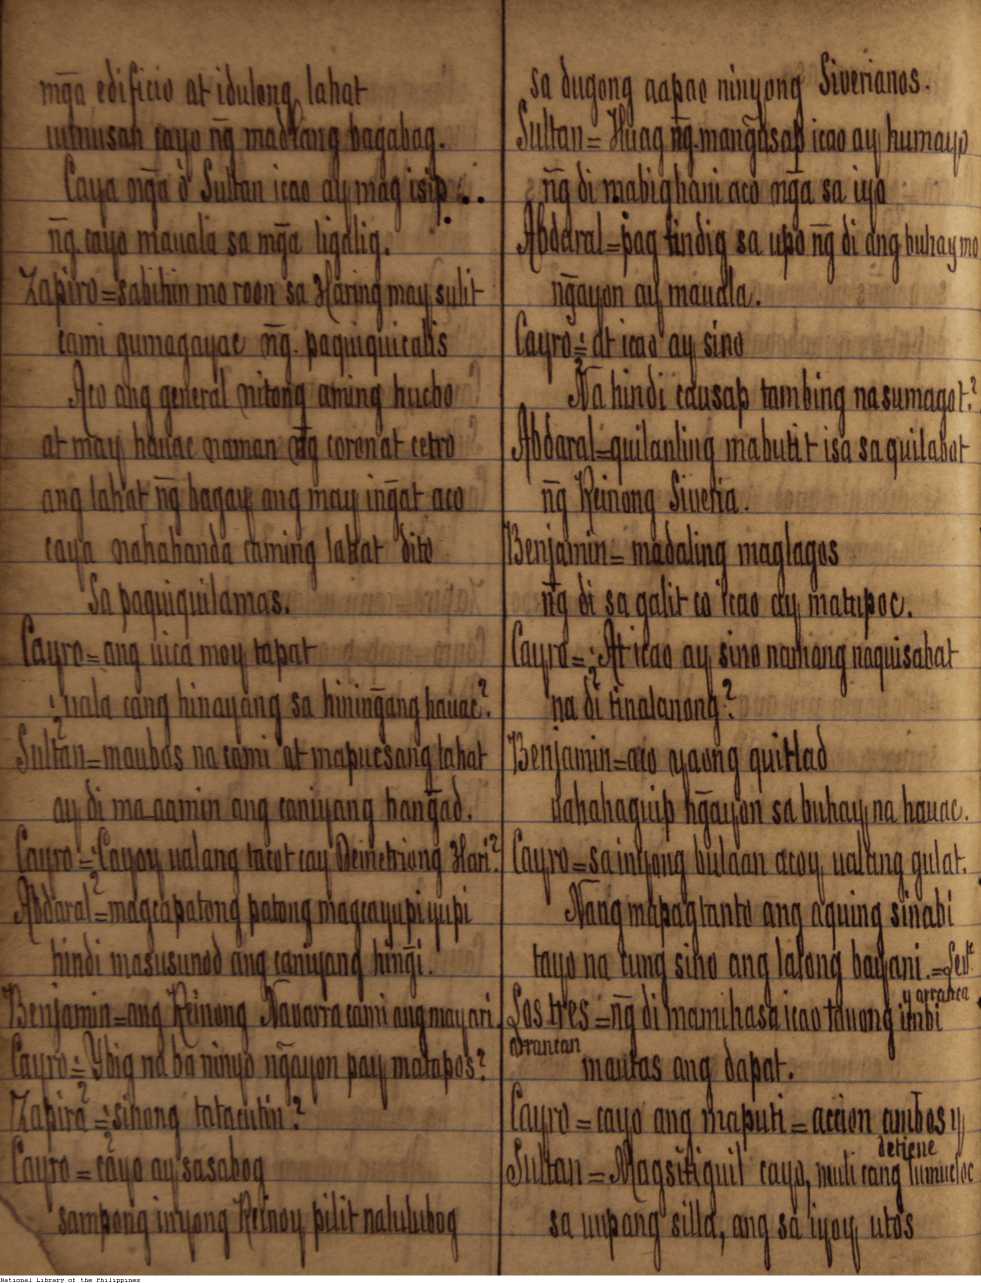 mḡa edificio at idulong lahat
cayo ñg madlang bagabag.
Caya mḡa ó Sultan icao ay mag isip...
ñg cayo mauala sa mḡa ligalig.
Zapiro=sabihin mo roon sa Haring may sulit
cami gumagayac ñg paquiquicalis
Aco ang general nitong aming hucbo
at may hauac naman ñg coron at cetro
ang lahat ñg bagay ang may inḡat aco
caya nahahanda caming lahat dito
sa paquiquilamas.
Cayro=ang uica moy tapat
¿uala cang hinayang sa hininḡang hauac?
Sultan=maubos na cami at mapucsang lahat
ay di ma aamin ang caniyang hanḡad.
Cayro=¿Cayoy ualang tacot cay Demetriong Hari?
Abdaral=magcapatong patong magcayupi yupi
hindi masusunod ang caniyang hinḡi.
Benjamin=ang Reinong Navarra cami ang may ari
Cayro=¿Ybig na ba ninyo nḡayon pay matapos?
Zapiro=¿sinong tatacutin?
Cayro=cayo ay sasabog
sampong inyong Reinoy pilit nalulubog
sa dugong aapao ninyong Siverianos.
Sultan=Huag ñg manḡusap icao ay humayo
ñg di mabighani aco mḡa sa iyo
Abdaral=pag tindig sa upo ñg di ang buhay mo
nḡayon ay mauala.
Cayro=¿at icao ay sino
Na hindi causap tambing na sumagot?
Abdaral=quilanling mabutit isa sa quilabot
ñg Reinong Siveria.
Benjamin=madaling maglagos
ñg di sa galit co icao ay matupoc.
Cayro=¿At icao ay sino namang naquisabat
na di tinatanong?
Benjamin=aco yaong quitlad
nahahaguip nḡayon sa buhay na hauac.
Cayro=sa inyong bulaan acoy ualang gulat.
Nang mapagtanto ang aquing sinabi
tayo na cung sino ang lalong bayani.=
y arranca
Los tres=ñg di mamihasa icao tauong imbi
arrancan
mautas ang dapat.
Cayro=cayo ang maputi=accion ambos y
detiene
Sultan=Magsitiguil cayo, muli cang lumucloc
sa uupang silla, ang sa iyoy utos
National Library of the Philippines